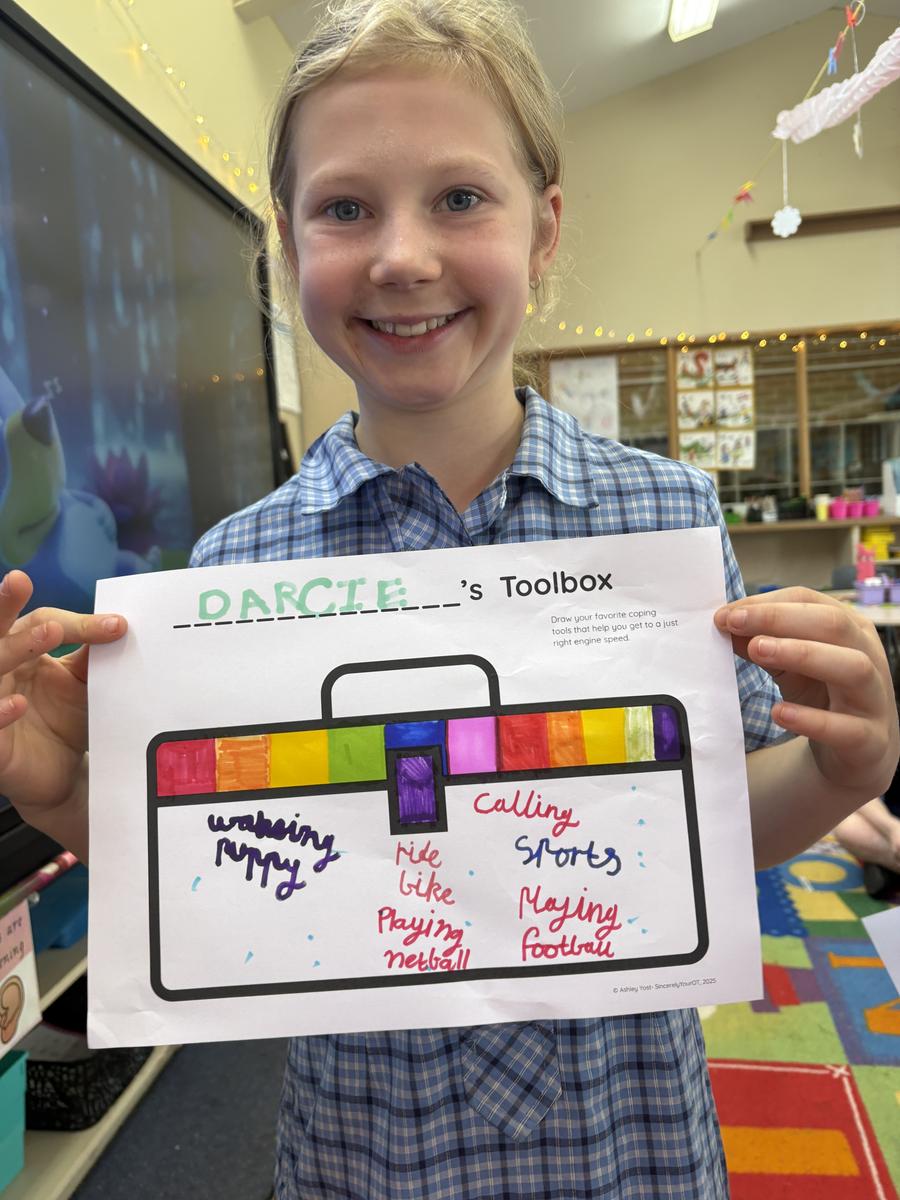 DARCIE's Toolbox
Draw your favorite coping
tools that help you get to a just
right engine speed.
walksing
puppy
ride
bike
Playing
netball
Calling
Sports
Playing
football
© Ashley Yost- SincerelyYourOT, 2025